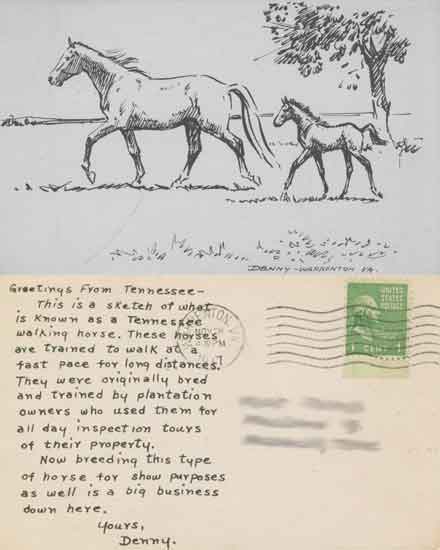 DENNY - WARRENTON VA.
Greetings From Tennessee—
This is a sketch of what
is known as a Tennessee
walking horse. These horses
are trained to walk at a
fast pace for long distances.
They were originally bred
and trained by plantation
owners who used them for
all day inspection tours
of their property.
Now breeding this type
of horse for show purposes
as well is a big business
down here.
Yours,
Denny.
NOV
PM
UNITED
STATES
POSTAGE
1 CENT 1